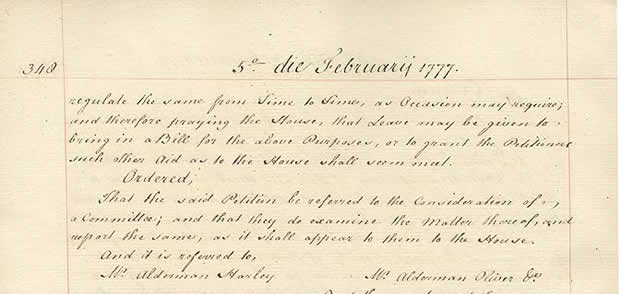 340 5º die Februarij 1777.
regulate the same from Time to Time, as Occasion may require;
and therefore praying the House, that Leave may be given to
bring in a Bill for the above Purposes, or to grant the Petitioners
such other Aid as to the House shall seem meet.
Ordered,
That the said Petition be referred to the Consideration of
a Committee; and that they do examine the Matter thereof, and
report the same, as it shall appear to them to the House.
And it is referred to,
Mr Alderman Harley Mr Alderman Oliver &c